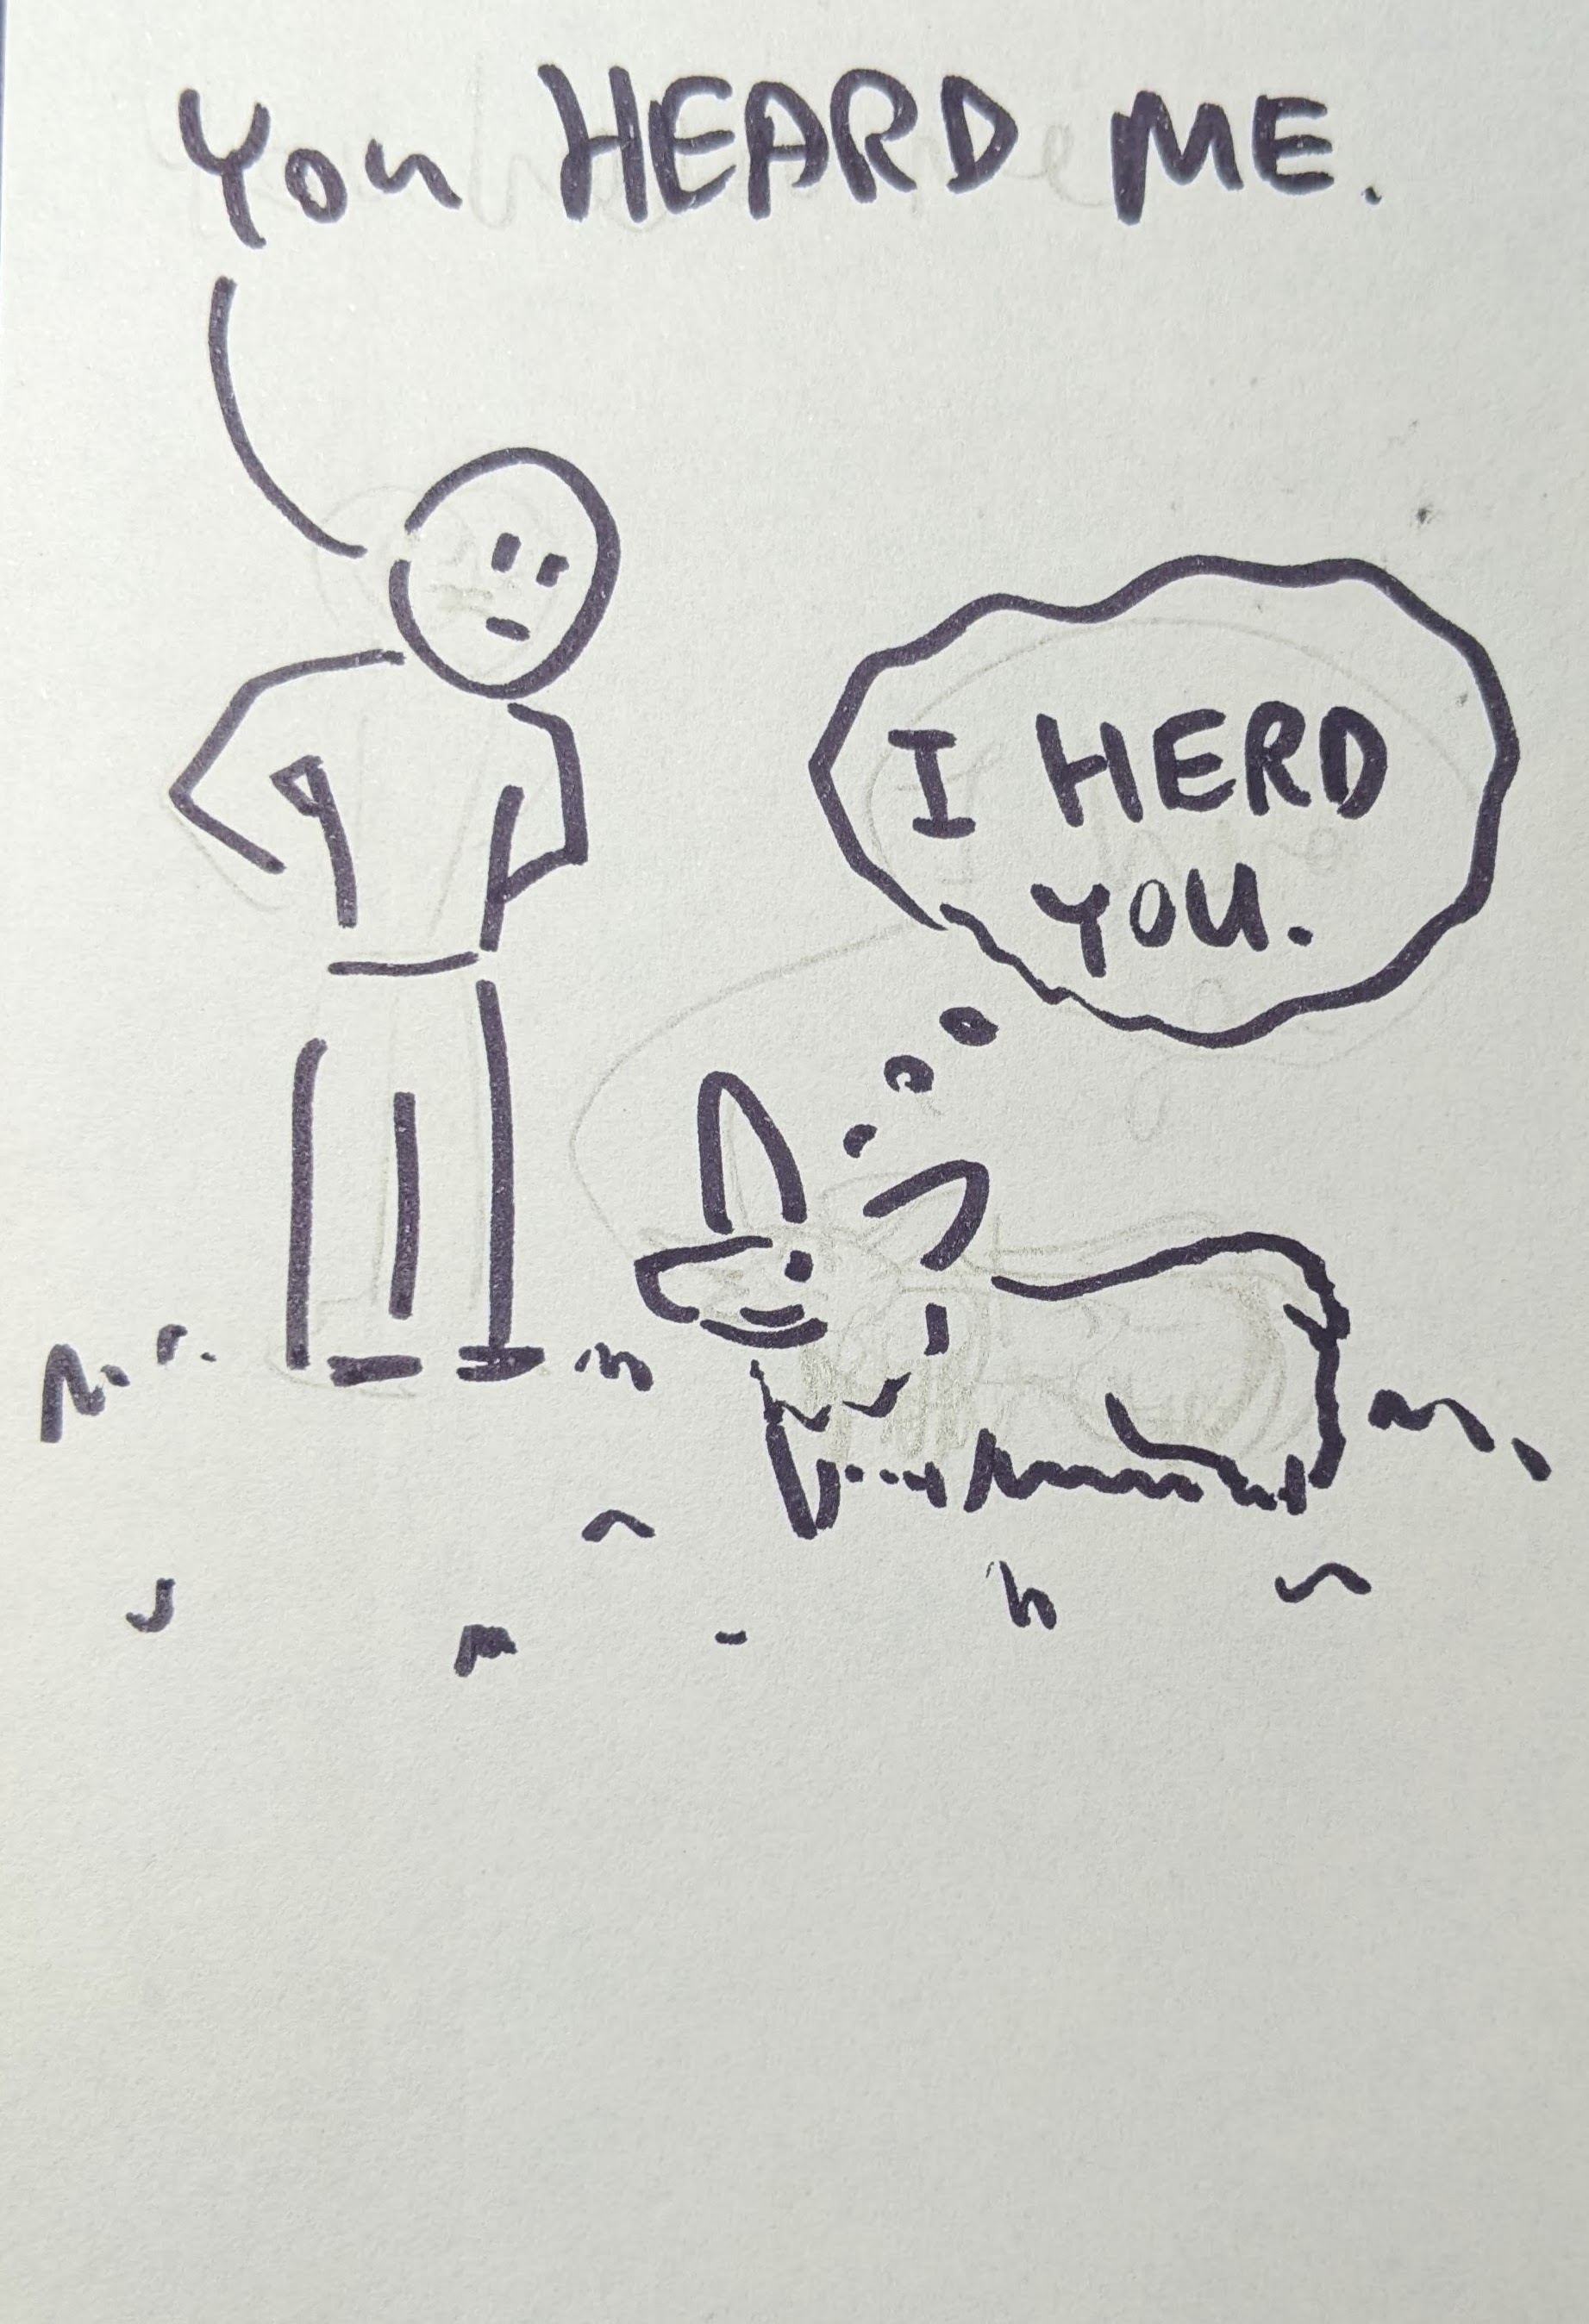 You HEARD ME.
I HERD
YOU.